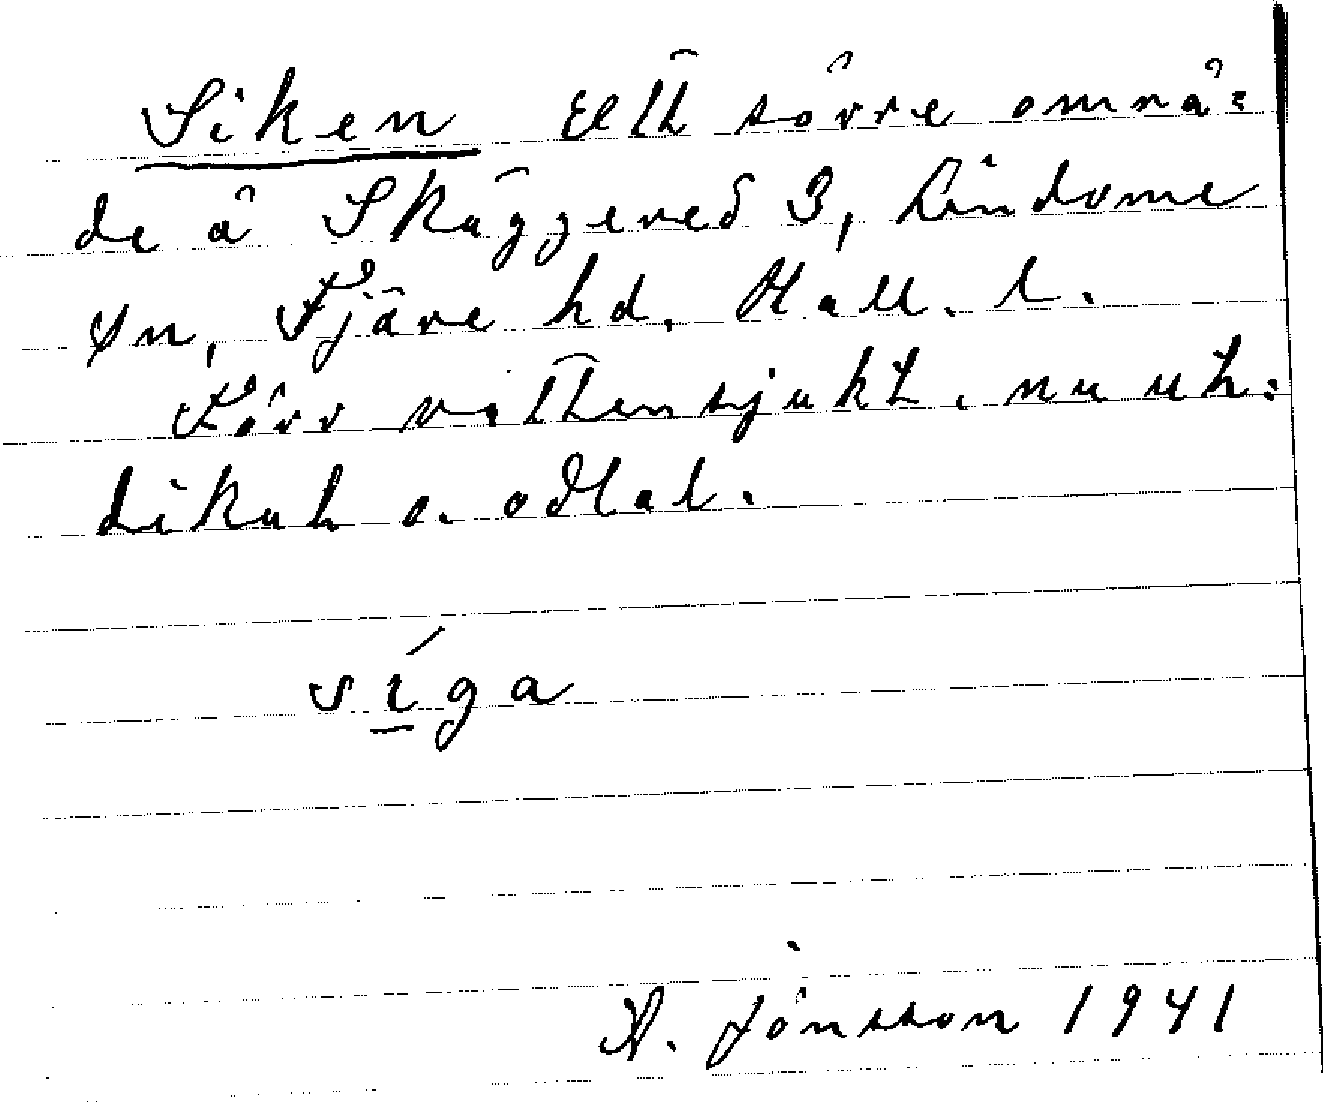 Siken Ett större områ=
de å Skäggered 3, Lindome
sn, Fjäre hd. Hall. l.
Förr vattensjukt, nu ut=
dikat o. odlat.
síga
A. Jönsson 1941